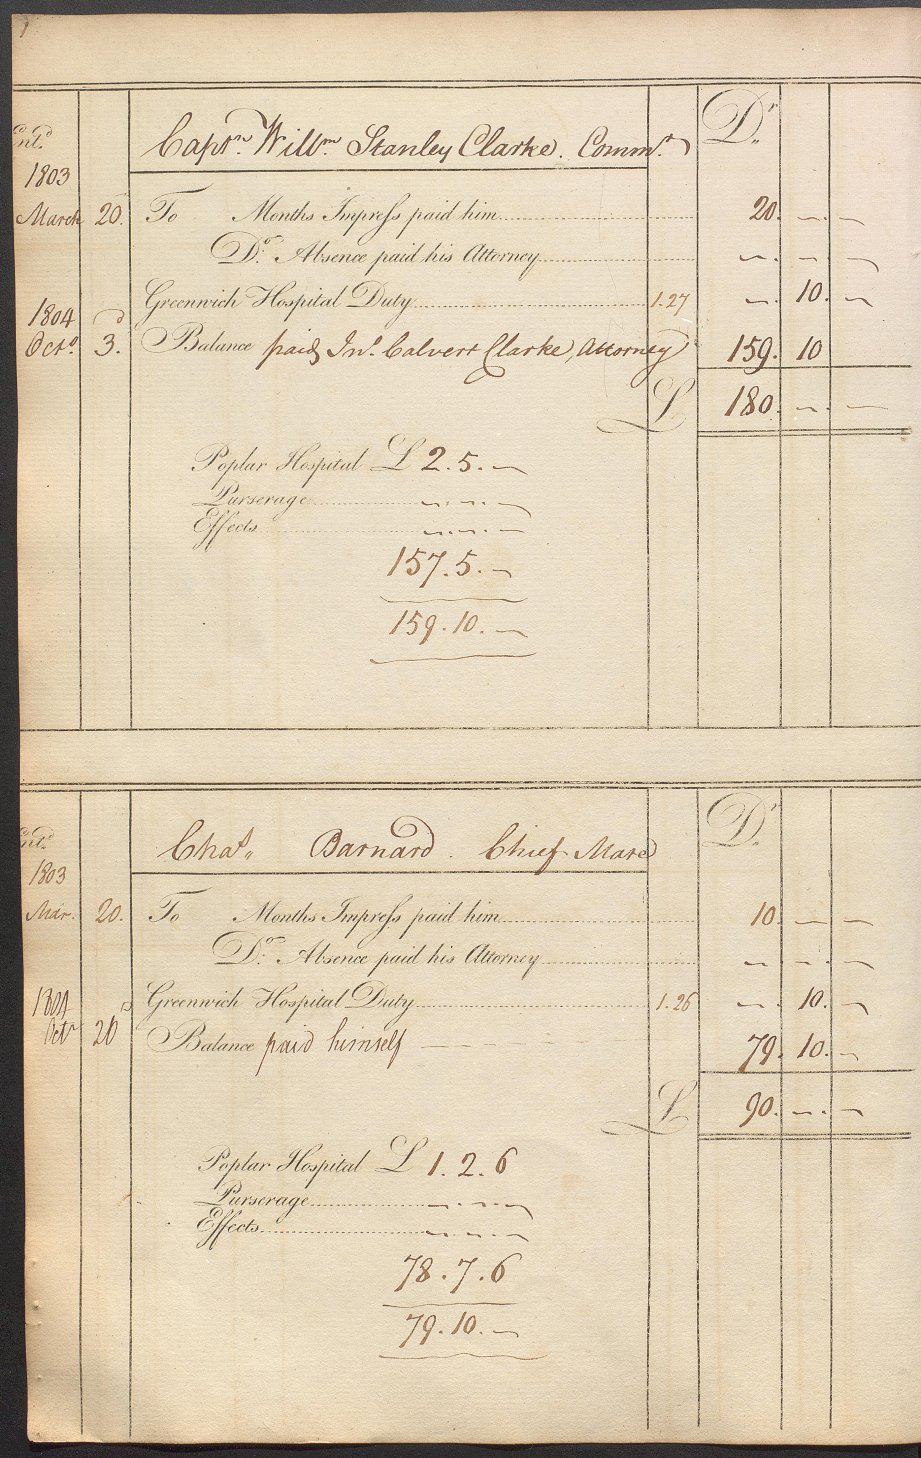 Captn. Willm. Stanley Clarke. Commr. Dr.
1803
March 20. To Months Impress paid him 20. — . —
Do. Absence paid his Attorney — . — . —
Greenwich Hospital Duty 1.27 — . 10. —
1804
Octo. 3. Balance paid Jno. Calvert Clarke, Attorney 159. 10
£ 180. — . —
Poplar Hospital £ 2. 5. —
Purserage — . — . —
Effects — . — . —
157. 5. —
159. 10. —
Chas. Barnard. Chief Mate Dr.
1803
Mar. 20. To Months Impress paid him 10. — . —
Do. Absence paid his Attorney — . — . —
Greenwich Hospital Duty 1.26 — . 10. —
1804
Octr 26 Balance paid himself 79. 10. —
£ 90. — . —
Poplar Hospital £ 1. 2. 6
Purserage — . — . —
Effects — . — . —
78. 7. 6
79. 10. —